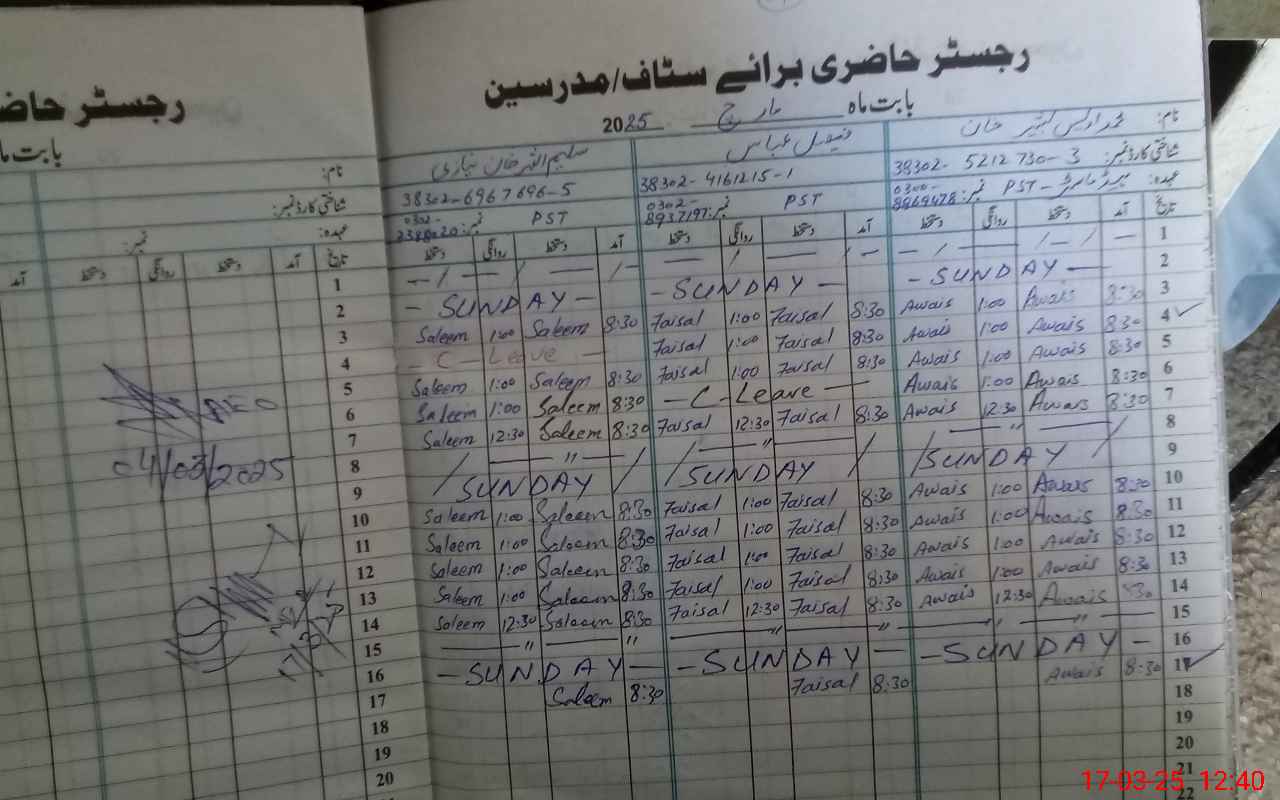 رجسٹر حاضری برائے سٹاف/مدرسین
بابت ماہ مارچ 2025
نام: محمد اویس خان فیصل عباس سلیم اللہ خان نیازی
شناختی کارڈ نمبر: 38302-5212730-3 38302-4161215-1 38302-6967696-5
عہدہ: PST نمبر: 0300-8869478 PST نمبر: 0302-8937197 PST نمبر: 0302-2388020
تاریخ آمد دستخط روانگی دستخط آمد دستخط روانگی دستخط آمد دستخط روانگی دستخط
— / — / — / — / — 1
- SUNDAY - - SUNDAY - - SUNDAY — 2
Saleem 1:00 Saleem 8:30 Faisal 1:00 Faisal 8:30 Awais 1:00 Awais 8:30 3
- C - Leave - Faisal 1:00 Faisal 8:30 Awais 1:00 Awais 8:30 4 ✓
Saleem 1:00 Saleem 8:30 Faisal 1:00 Faisal 8:30 Awais 1:00 Awais 8:30 5
Saleem 1:00 Saleem 8:30 - C - Leave - Awais 1:00 Awais 8:30 6
Saleem 12:30 Saleem 8:30 Faisal 12:30 Faisal 8:30 Awais 12:30 Awais 8:30 7
/ — " — / / — " — / / — " — / 8
SUNDAY SUNDAY SUNDAY 9
Saleem 1:00 Saleem 8:30 Faisal 1:00 Faisal 8:30 Awais 1:00 Awais 8:30 10
Saleem 1:00 Saleem 8:30 Faisal 1:00 Faisal 8:30 Awais 1:00 Awais 8:30 11
Saleem 1:00 Saleem 8:30 Faisal 1:00 Faisal 8:30 Awais 1:00 Awais 8:30 12
Saleem 1:00 Saleem 8:30 Faisal 1:00 Faisal 8:30 Awais 1:00 Awais 8:30 13
Saleem 12:30 Saleem 8:30 Faisal 12:30 Faisal 8:30 Awais 12:30 Awais 830 14
— " — " — " — " — " — " — 15
- SUNDAY — - SUNDAY — - SUNDAY - 16
Saleem 8:30 Faisal 8:30 Awais 8:30 17 ✓
18
19
20
21
22
رجسٹر حاض
بابت ما
نام:
شناختی کارڈ نمبر:
عہدہ: نمبر:
تاریخ آمد دستخط روانگی دستخط آمد
1
2
3
4
5
AEO 6
7
04/03/2025 8
9
10
11
12
13
14
15
16
17
18
19
20
17-03-25 12:40